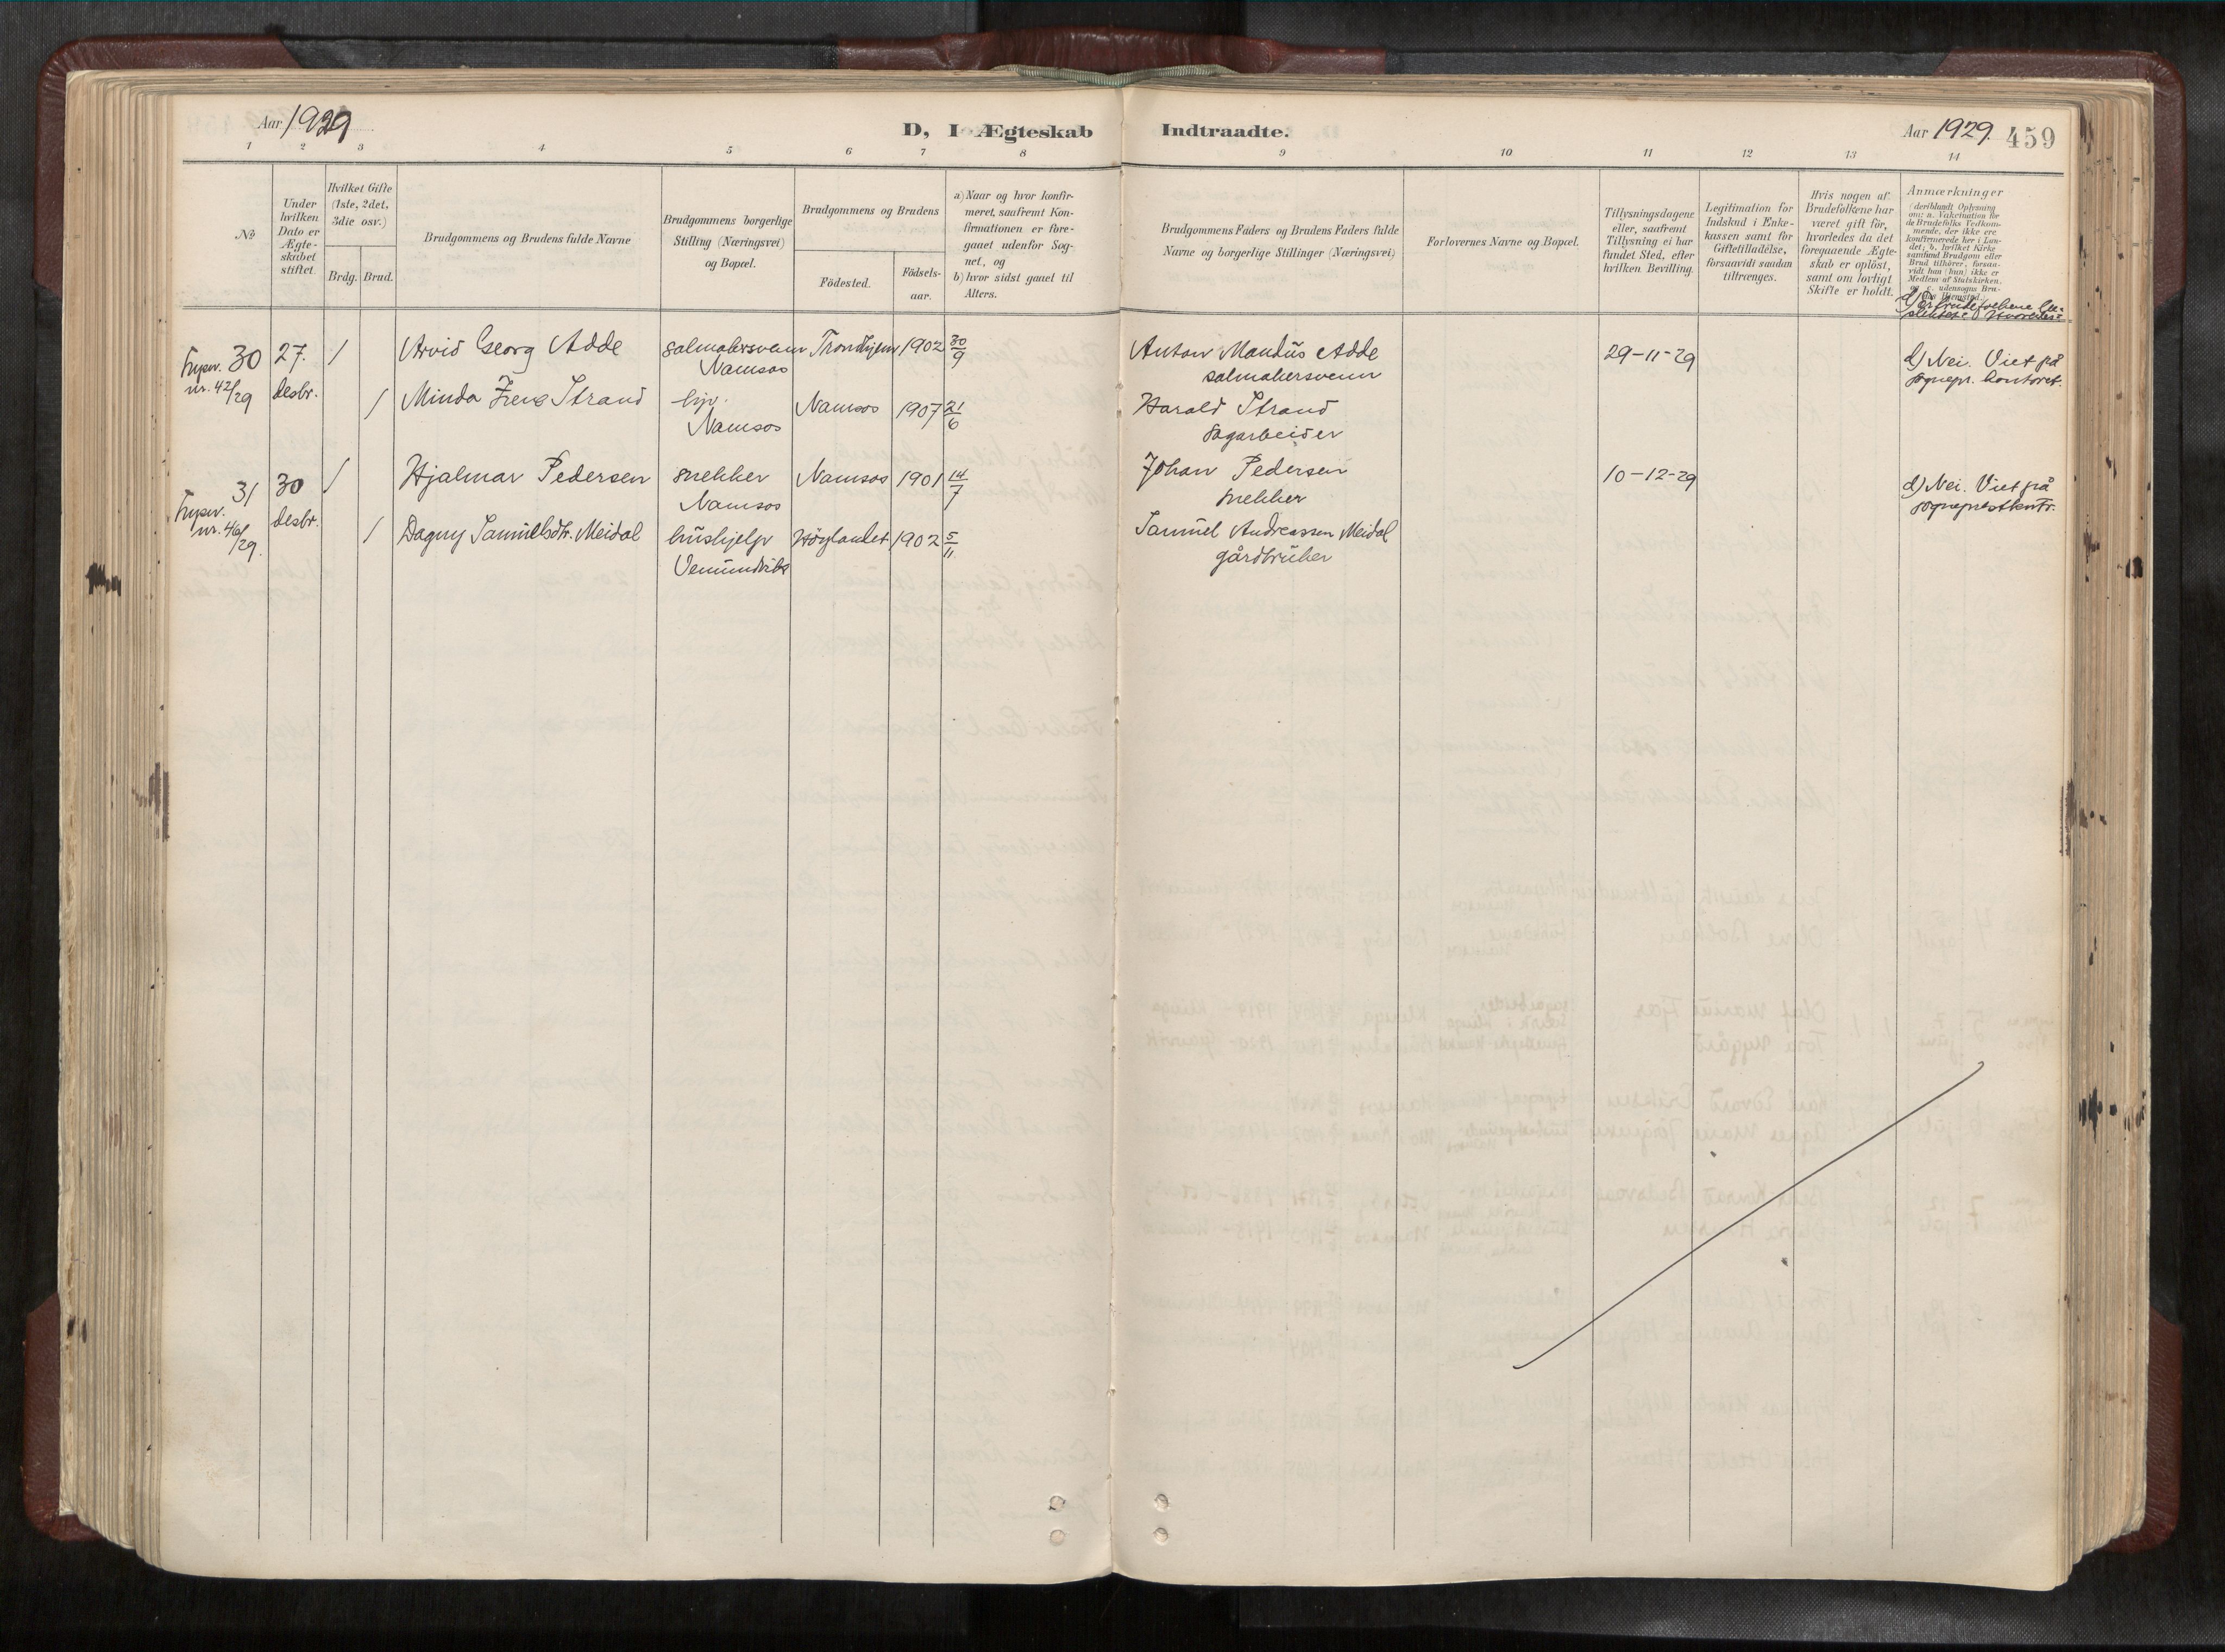 Aar 1929
D, I Ægteskab
Indtraadte.
Aar 1929. 459
1 2 3 4 5 6 7 8 9 10 11 12 13 14
No
Under hvilken Dato er Ægte-skabet stiftet.
Hvilket Gifte (1ste, 2det, 3die osv.)
Brdg. Brud.
Brudgommens og Brudens fulde Navne
Brudgommens borgerlige Stilling (Næringsvei) og Bopæl.
Brudgommens og Brudens
Födested.
Födsels-aar.
a) Naar og hvor konfir-meret, saafremt Kon-firmationen er fore-gaaet udenfor Sog-net, og
b) hvor sidst gaaet til Alters.
Brudgommens Faders og Brudens Faders fulde Navne og borgerlige Stillinger (Næringsvei)
Forlovernes Navne og Bopæl.
Tillysningsdagene eller, saafremt Tillysning ei har fundet Sted, efter hvilken Bevilling.
Legitimation for Indskud i Enke-kassen samt for Giftetilladelse, forsaavidt saadan tiltrænges.
Hvis nogen af Brudefolkene har været gift för, hvorledes da det foregaaende Ægte-skab er oplöst, samt om lovligt Skifte er holdt.
Anmærkninger
(deriblandt Oplysning om: a. Vakcination for de Brudefolks Vedkom-mende, der ikke ere konfirmerede her i Lan-det; b. hvilket Kirke-samfund Brudgom eller Brud tilhörer, forsaa-vidt han (hun) ikke er Medlem af Statskirken. og c. udensogns Bru-
30 27. 1 Arvid Georg Adde salmakersvenn Trondhjem 1902 30/9 Anton Mandús Adde 29-11-29 d) Nei. Viet på
nr. 42/29 desbr. Namsos salmakersvenn sognepr. kontoret.
1 Minda Irene Strand Namsos 1907 21/6 Harald Strand
Namsos sagarbeider
31 30 1 Hjalmar Pedersen snekker Namsos 1901 14/7 Johan Pedersen 10-12-29 d) Nei. Viet på
desbr. Namsos snekker sogneprestkontr.
nr. 46/29. 1 Dagny Samúelsdtr. Meidal húshjelp Höylandet 1902 5/11 Samúel Andreassen Meidal
Vemúndvik gårdbrúker